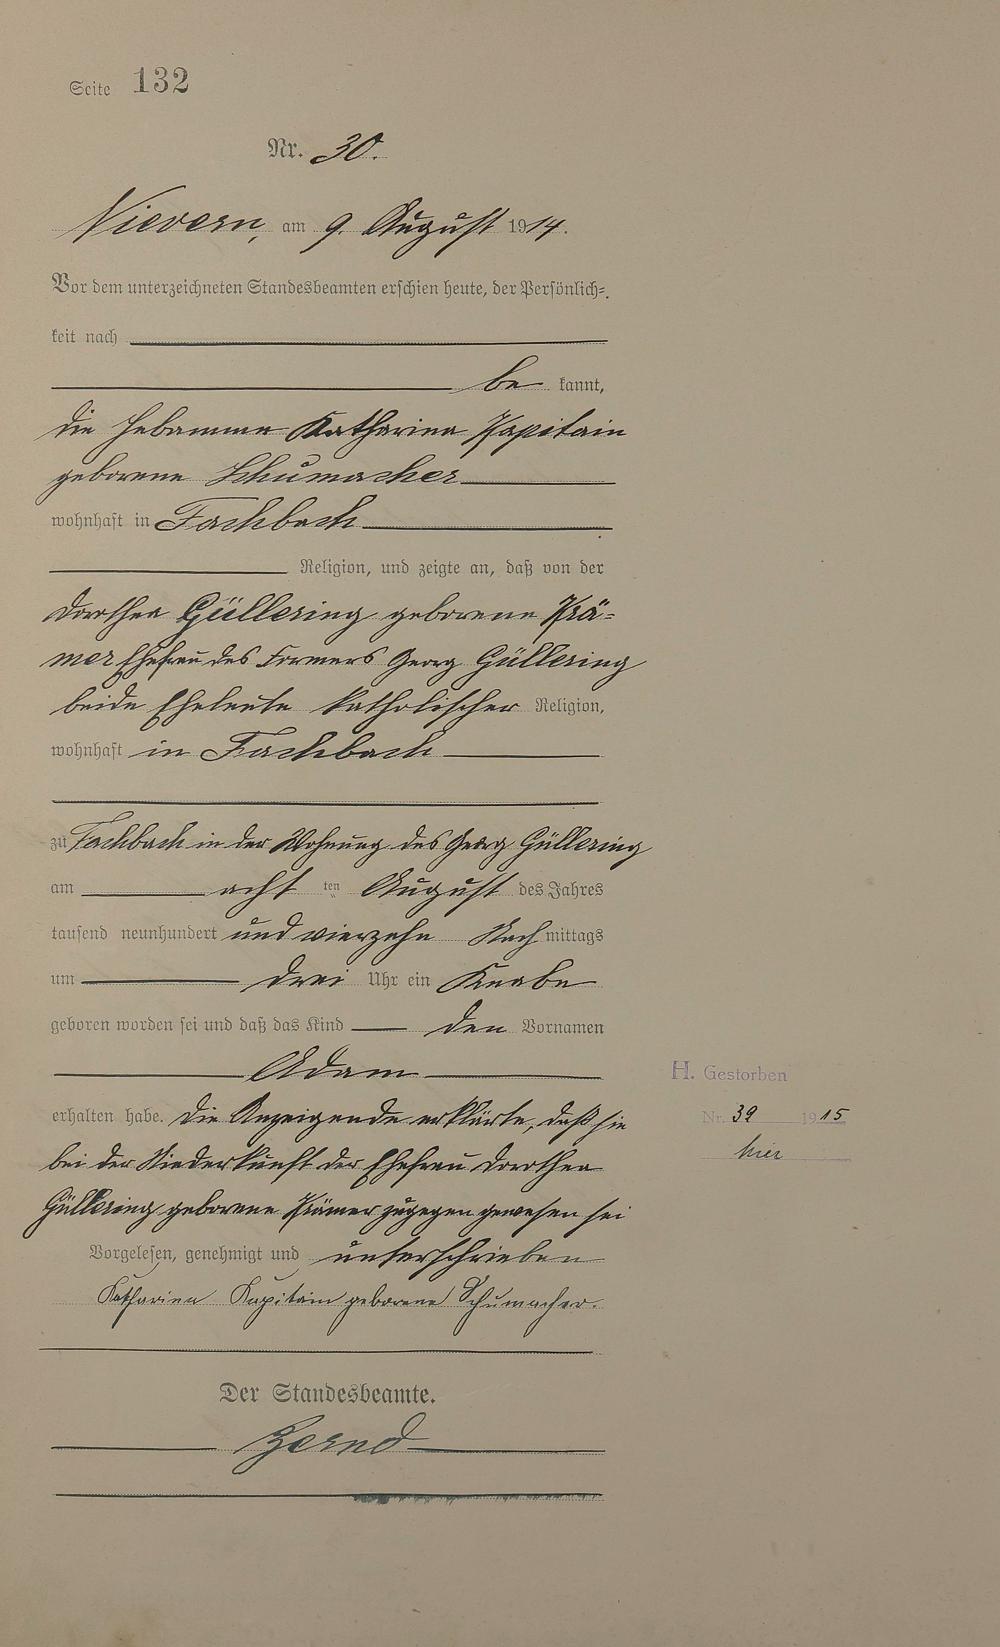 Seite 132
Nr. 30.
Nievern, am 9. August 1914.
Vor dem unterzeichneten Standesbeamten erschien heute, der Persönlich=
keit nach
be kannt,
die Hebamme Katharina Kapitain
geborene Schumacher
wohnhaft in Fachbach
Religion, und zeigte an, daß von der
Dorothea Güllering geborene Krä-
mer Ehefrau des Formers Georg Güllering
beide Eheleute katholischer Religion,
wohnhaft in Fachbach
zu Fachbach in der Wohnung des Georg Güllering
am acht ten August des Jahres
tausend neunhundert und vierzehn Nach mittags
um drei Uhr ein Knabe
geboren worden sei und daß das Kind den Vornamen
Adam
H. Gestorben
erhalten habe. Die Anzeigende erklärte, daß sie
Nr. 39 1915
bei der Niederkunft der Ehefrau Dorothea
hier
Güllering geborene Krämer zugegen gewesen sei
Vorgelesen, genehmigt und unterschrieben
Katharina Kapitain geborene Schumacher.
Der Standesbeamte.